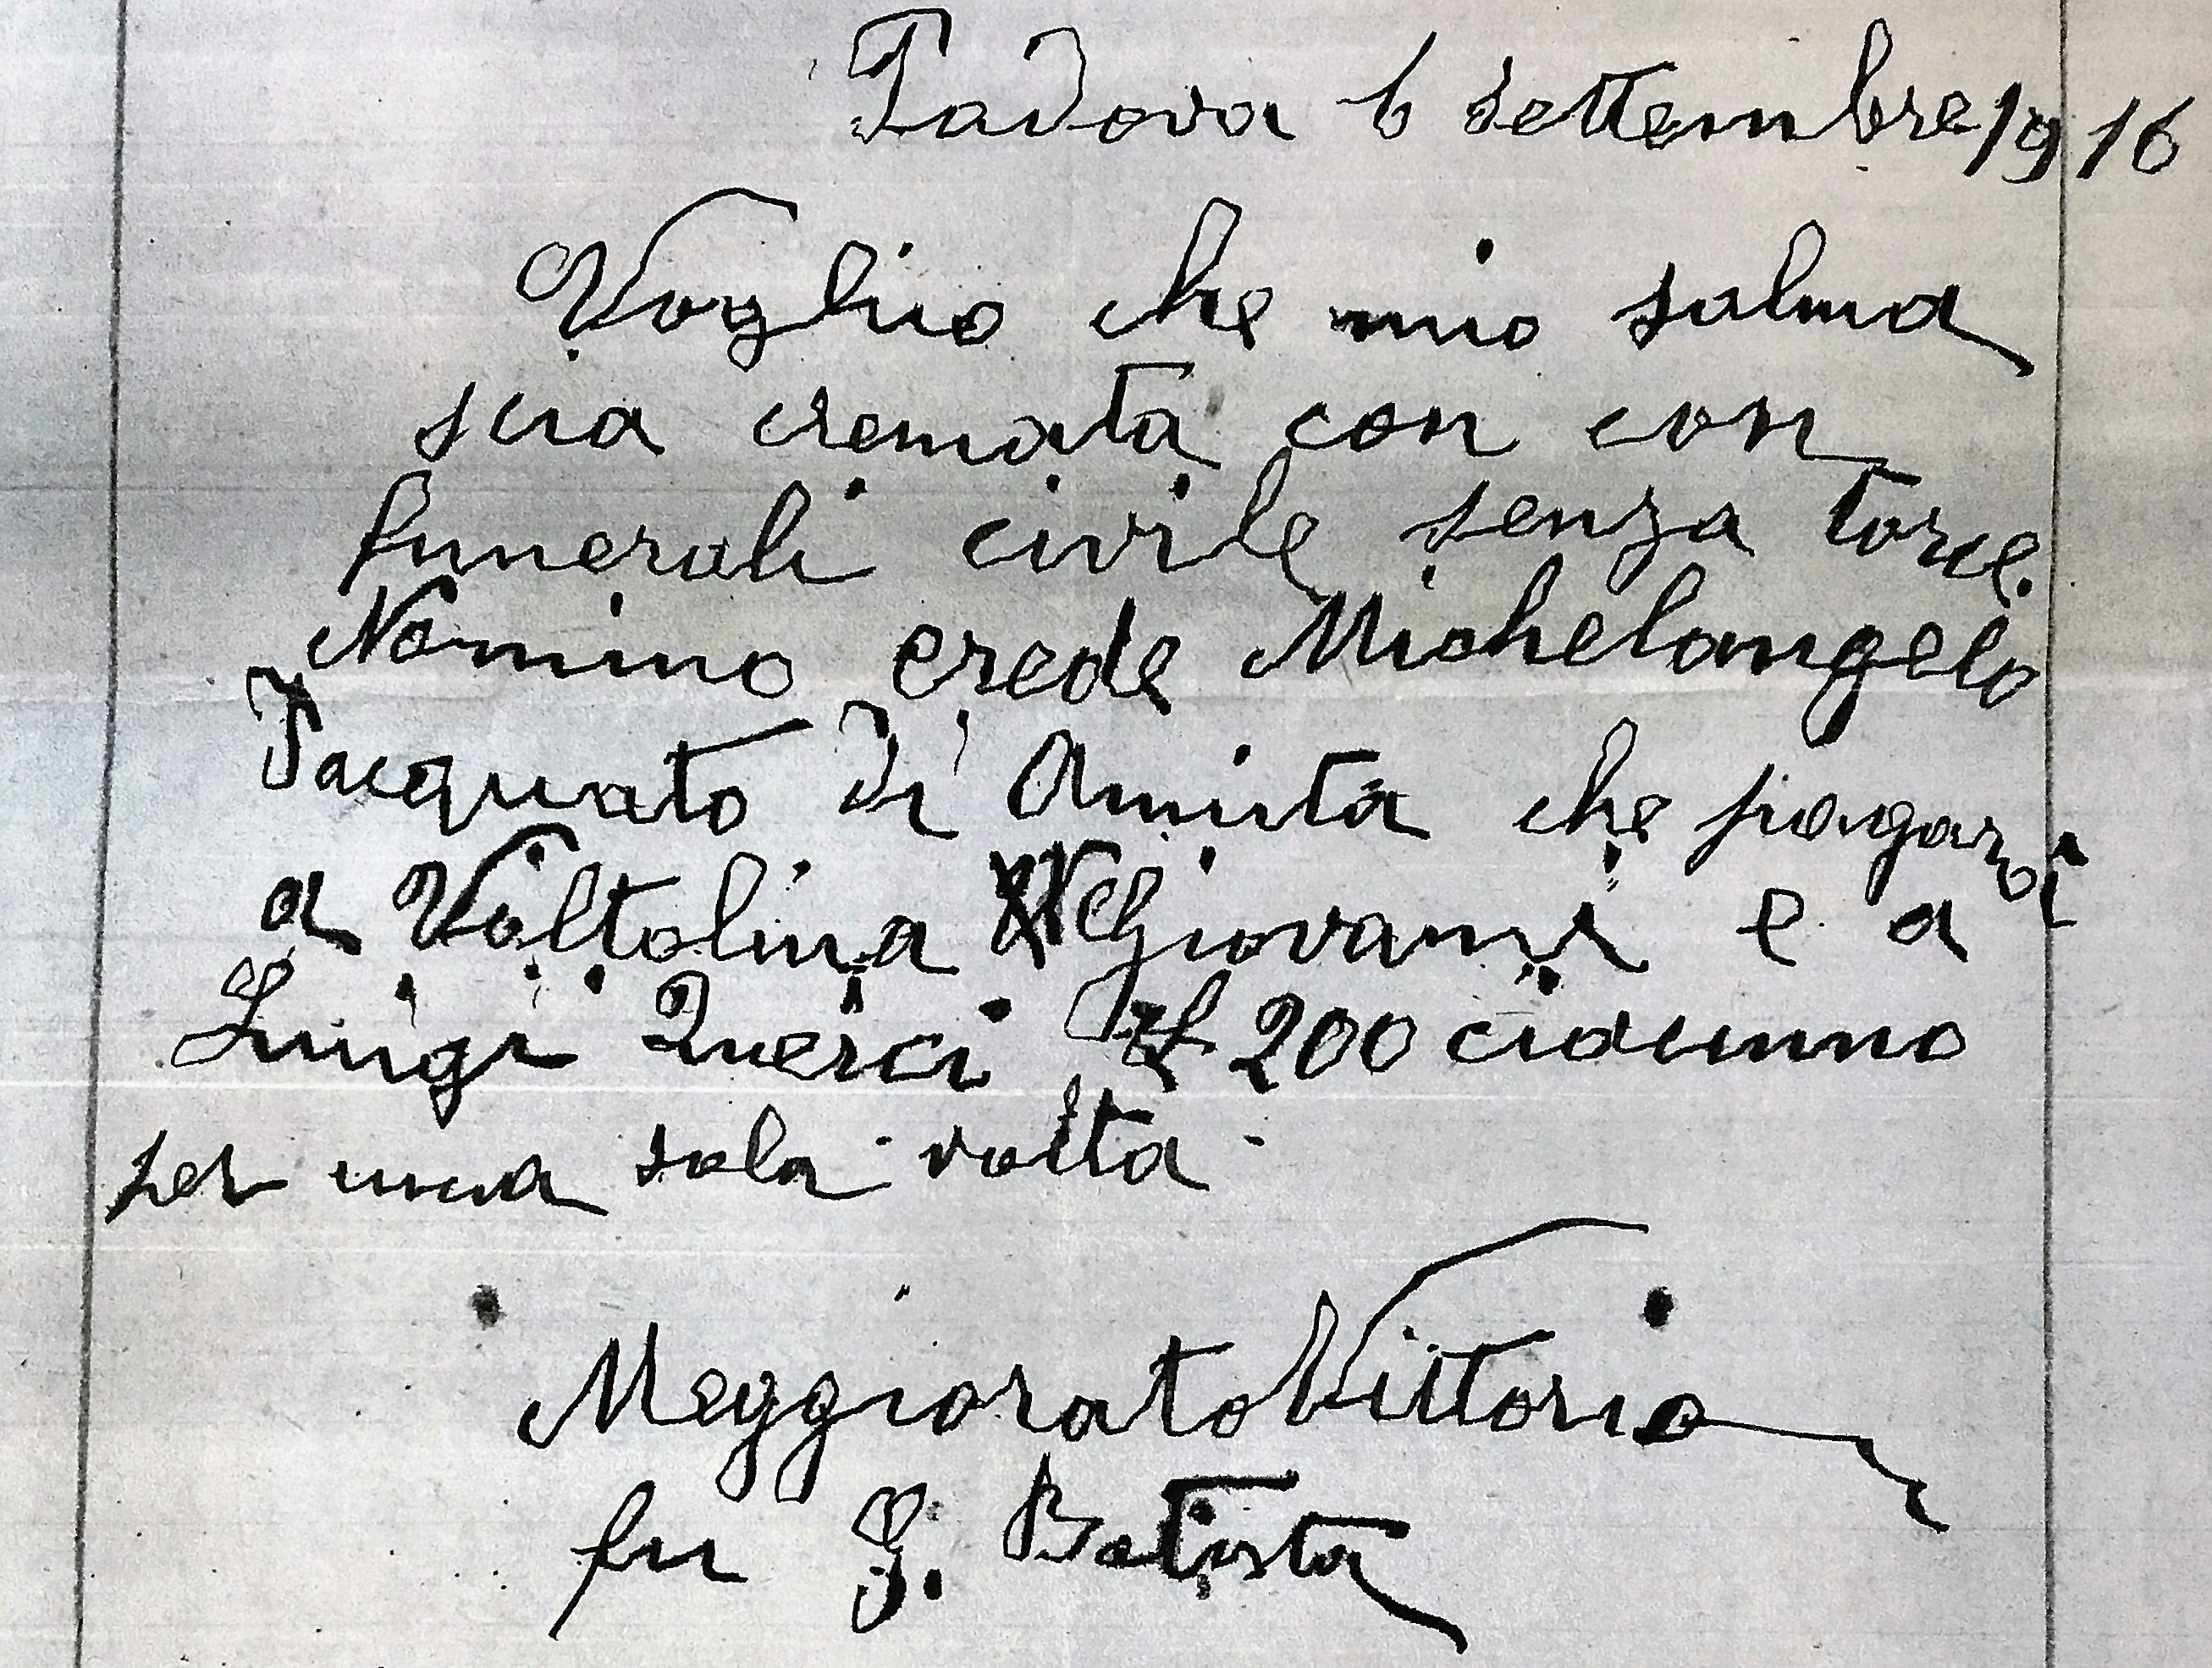 Padova 6 settembre 1916
Voglio che mio salma
sia cremata con con
funerali civile senza torce.
Nomino erede Michelangelo
Jacquato di Aminta che pagarà
a Voltolina Giovanni e a
Luigi Querci £ 200 ciascunno
per una sola volta
Meggiorato Vittorio
fu G. Batista